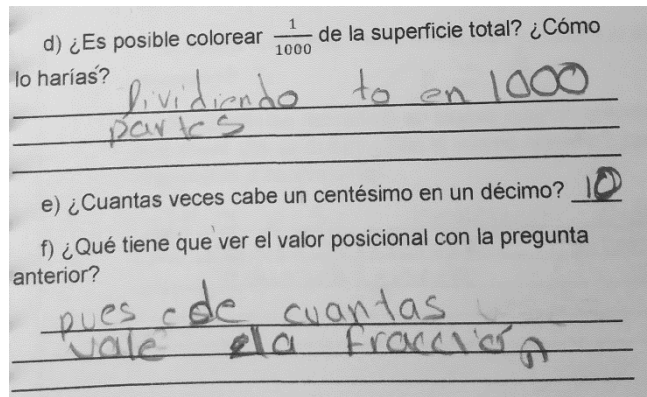 d) ¿Es posible colorear 1/1000 de la superficie total? ¿Cómo
lo harías?
Dividiendo to en 1000
partes
e) ¿Cuantas veces cabe un centésimo en un décimo? 10
f) ¿Qué tiene que ver el valor posicional con la pregunta
anterior?
pues de cuantas
vale la fracción